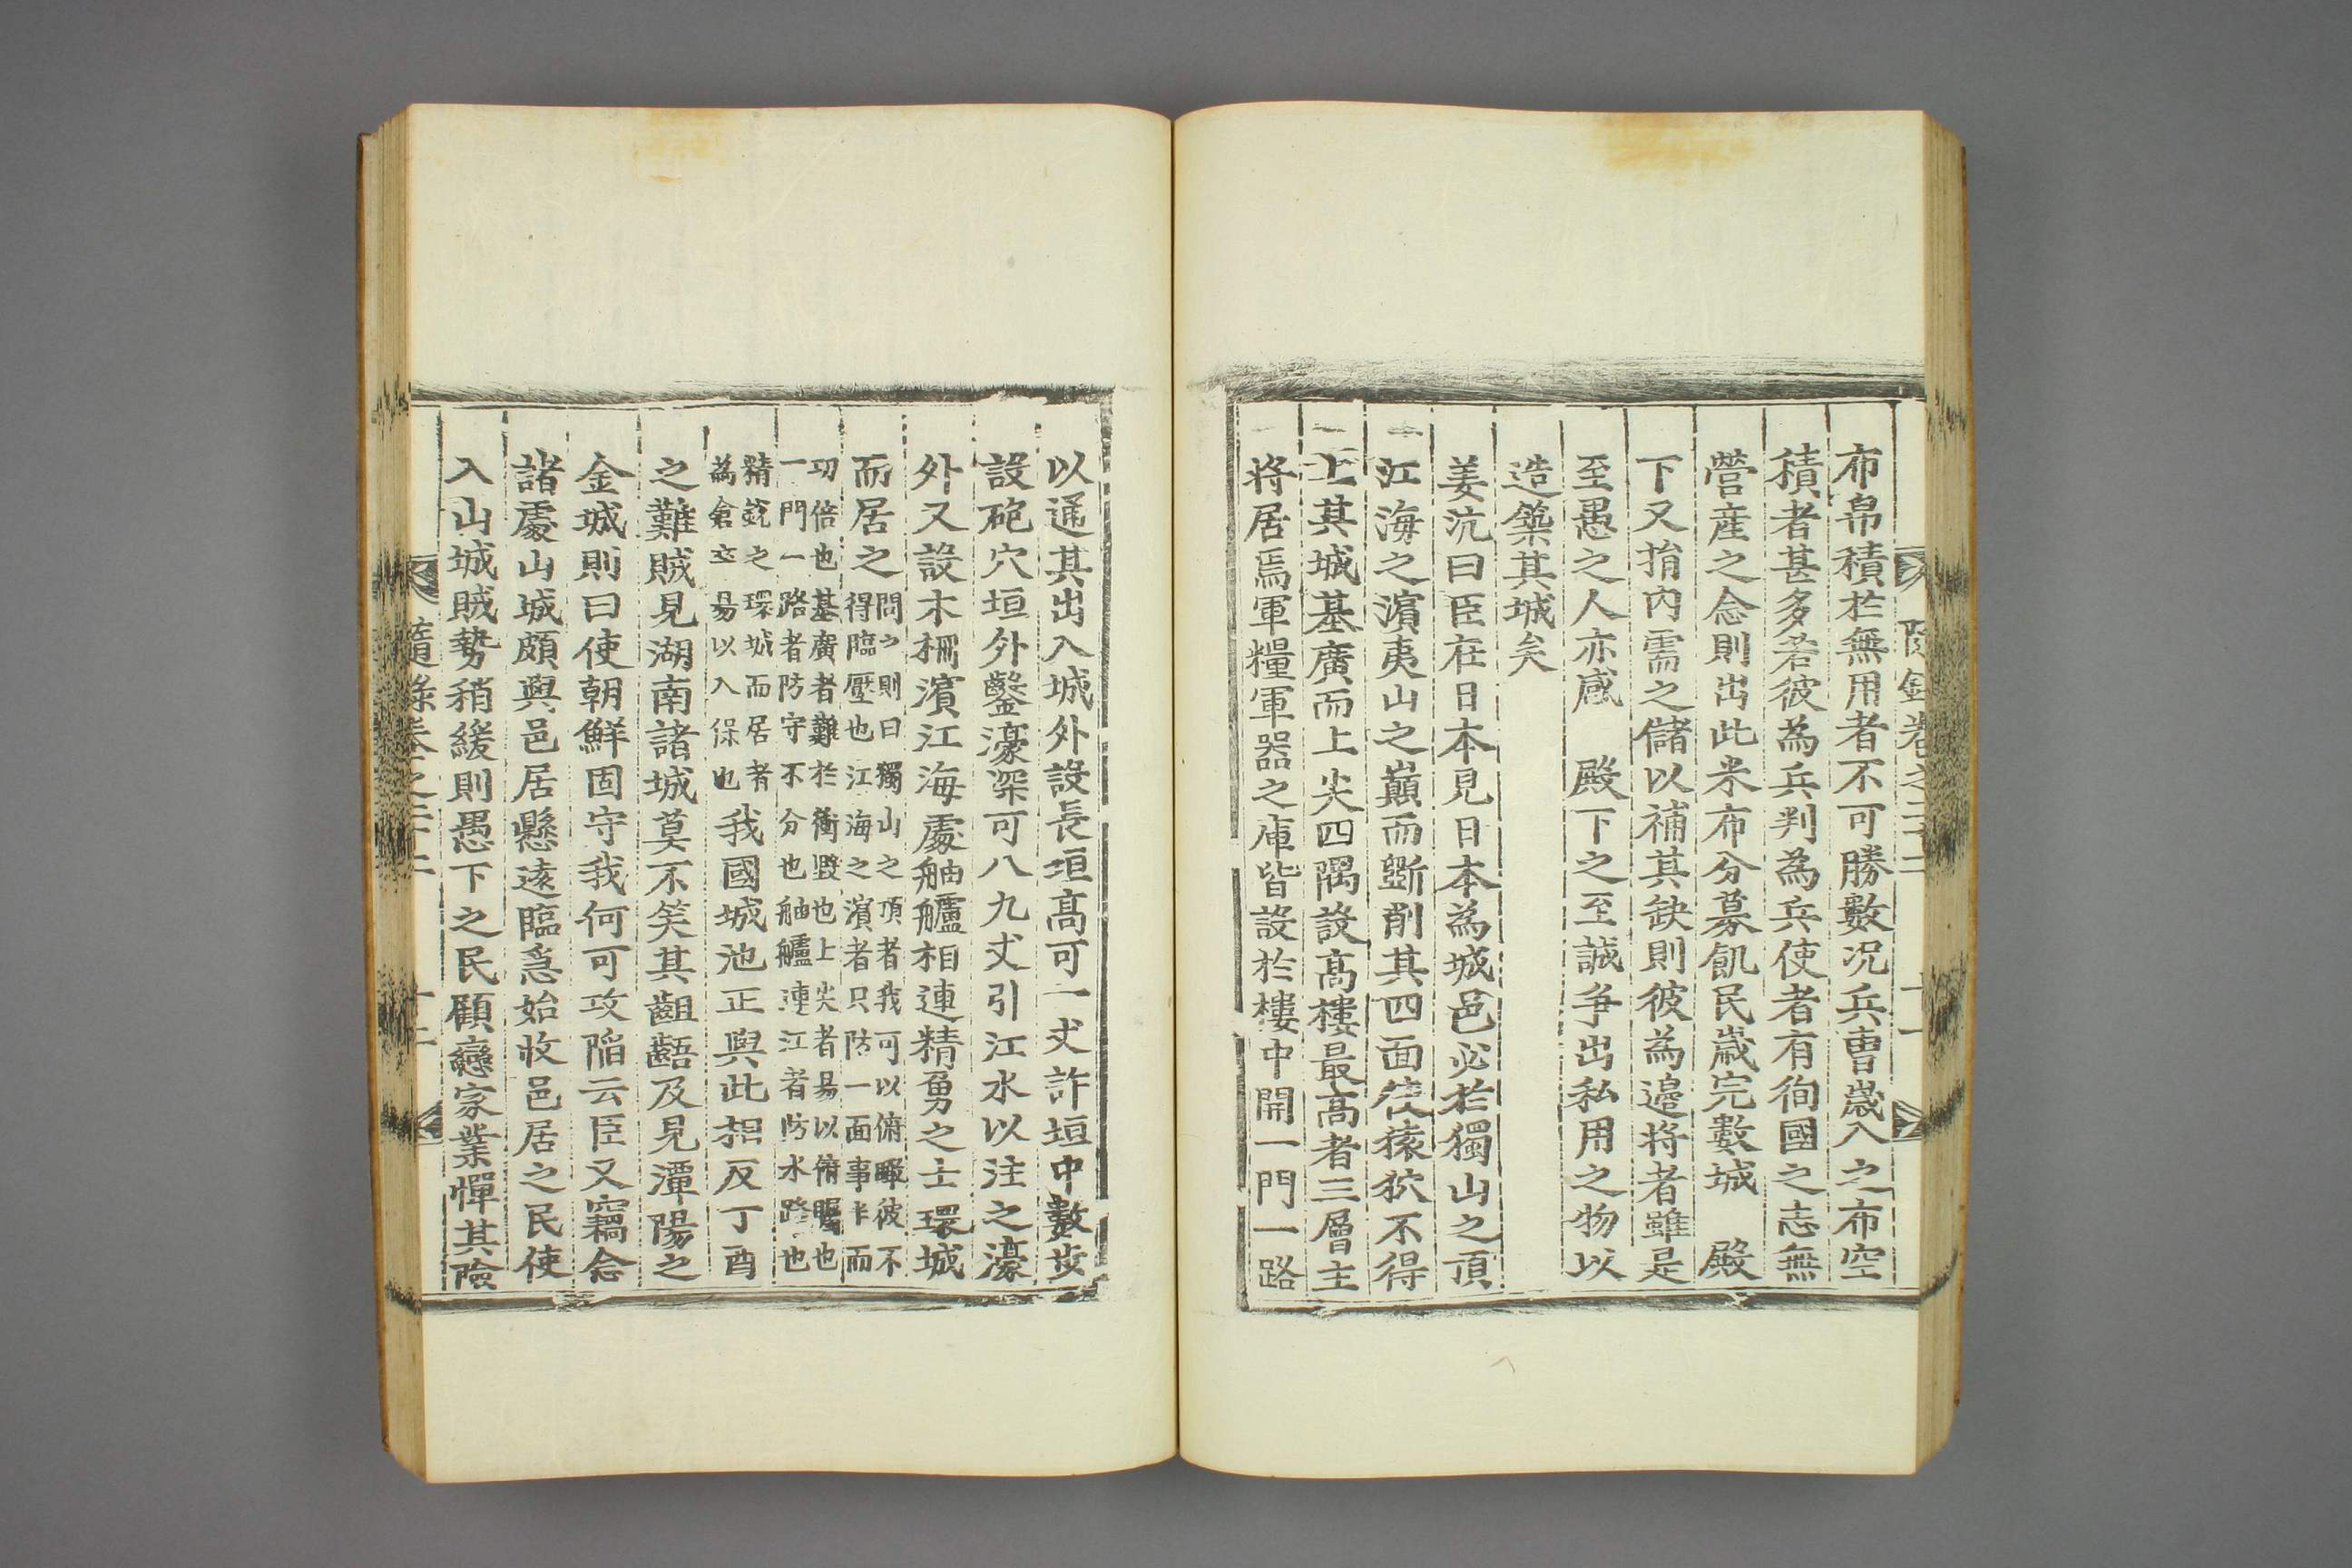 布帛積於無用者不可勝數况兵曹歲入之布空
積者甚多若彼為兵判為兵使者有徇國之志無
營産之念則出此米布分募飢民歲完數城　殿
下又捐內需之儲以補其缺則彼為邊將者雖是
至愚之人亦感　殿下之至誠爭出私用之物以
造築其城矣
姜沆曰臣在日本見日本為城邑必於獨山之頂
江海之濱夷山之巓而斲削其四面使猿狖不得
上其城基廣而上尖四隅設高樓最高者三層主
將居焉軍糧軍器之庫皆設於樓中開一門一路
以通其出入城外設長垣高可一丈許垣中數步
設砲穴垣外鑿濠深可八九丈引江水以注之濠
外又設木柵濱江海處舳艫相連精勇之士環城
而居之問之則曰獨山之頂者我可以俯瞰彼不
得臨壓也江海之濱者只防一面事半而
功倍也基廣者難於衝毀也上尖者易以俯矚也
一門一路者防守不分也舳艫連江者防水路也
精銳之環城而居者
為倉卒易以入保也我國城池正與此相反丁酉
之難賊見湖南諸城莫不笑其齟齬及見潭陽之
金城則曰使朝鮮固守我何可攻陷云臣又竊念
諸處山城頗與邑居懸遠臨急始收邑居之民使
入山城賊勢稍緩則愚下之民顧戀家業憚其險
隨錄卷之二十二